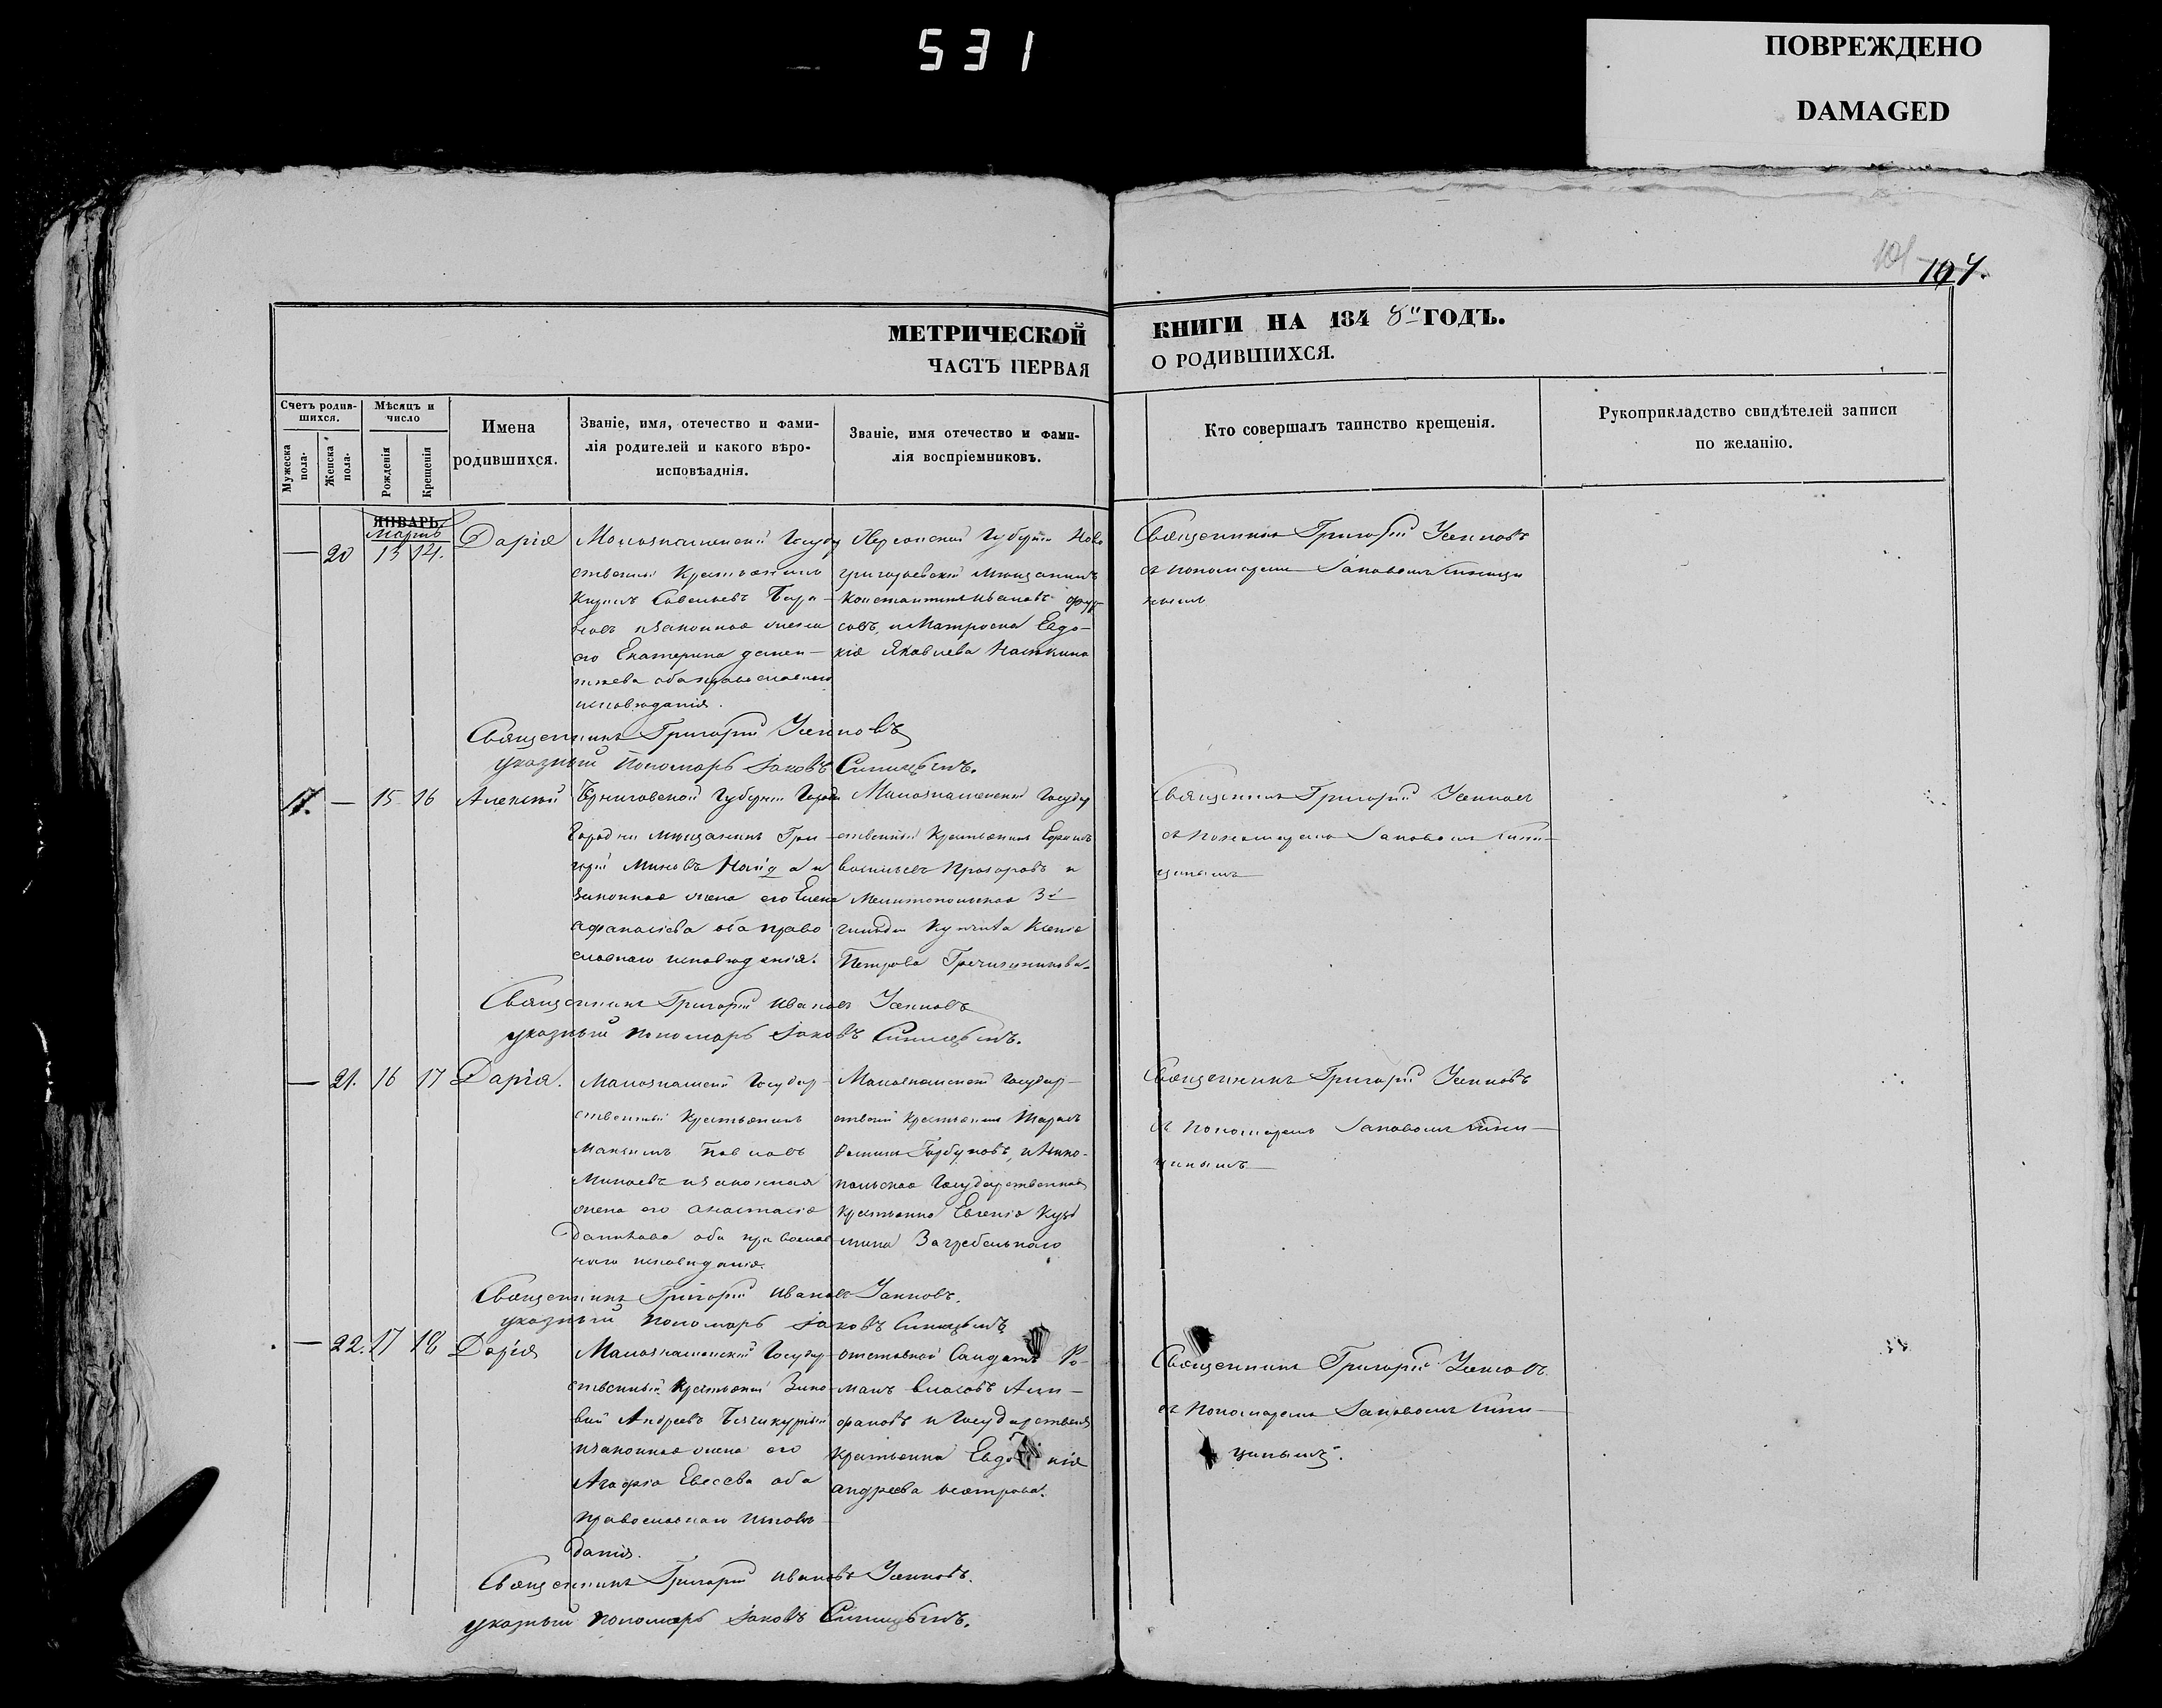 531
ПОВРЕЖДЕНО
DAMAGED
101
107.
МЕТРИЧЕСКОЙ КНИГИ НА 1848й ГОДЪ.
ЧАСТЬ ПЕРВАЯ О РОДИВШИХСЯ.
Счетъ родив-
шихся.
Мужеска
пола.
Женска
пола.
Мѣсяцъ и
число
Рожденія
Крещенія
Имена
родившихся.
Званіе, имя, отечество и фами-
лія родителей и какого вѣро-
исповѣаднія.
Званіе, имя отечество и фами-
лія воспріемниковъ.
Кто совершалъ таинство крещенія.
Рукоприкладство свидѣтелей записи
по желанію.
ЯНВАРЬ.
Мартъ
— 20 13 14. Дарія
государ
ственный Крестьянинъ
Савельевъ
изаконная жена
его Екатерина демен-
тьева оба православнаго
исповѣданія.
Херсонской Губерніи Ново
григорьевскій мѣщанинъ
Константинъ Ивановъ
совъ, и Матроска Евдо-
кія Яковлева
Священникъ Григорій
съ пономаремъ Іаковомъ Синици
нымъ
Священникъ Григорій
указный Пономарь Іаковъ Синицынъ.
17. — 15 16 Алексѣй
Черниговской Губерніи Города
Городни мѣщанинъ Гри-
горій Миновъ и
законная жена его Елена
Афанасіева оба право
славнаго исповѣданія.
Государ
ственный Крестьянинъ Ефимъ
васильевъ Прохоровъ и
Мелитопольская 3й
гильдіи Купчиха Ксенія
Петрова Гречишникова
Священникъ Григорій
съ Пономаремъ Іаковомъ Сини-
цынымъ
Священникъ Григорій Ивановъ
указный пономарь Іаковъ Синицынъ.
— 21. 16 17 Дарія.
Государ-
ственный Крестьянинъ
Максимъ Павловъ
Минаевъ изаконная
жена его Анастасія
Данилова оба православ
наго исповѣданія.
Государ-
ственый Крестьянинъ Тарасъ
Горбуновъ, и Нико-
польская Государственная
крестьянка Евгенія Кузь
мина Загребельнаго
Священникъ Григорій
съ Пономаремъ Іаковомъ Сини-
цинымъ
Священникъ Григорій Ивановъ
указный Пономарь Іаковъ Синицынъ
— 22. 17 18 Дарія
Государ-
ственный Крестьянинъ Зино-
вій Андреевъ
изаконная жена его
Агафія Евсеева оба
православнаго исповѣ
данія.
отставной Салдатъ Ро-
манъ Власовъ Али-
фановъ и Государственая
крестьянка Евдокія
андреева
Священникъ Григорій
съ Пономаремъ Іаковомъ Сини-
цинымъ.
Священникъ Григорій Ивановъ
указный пономарь Іаковъ Синицынъ.